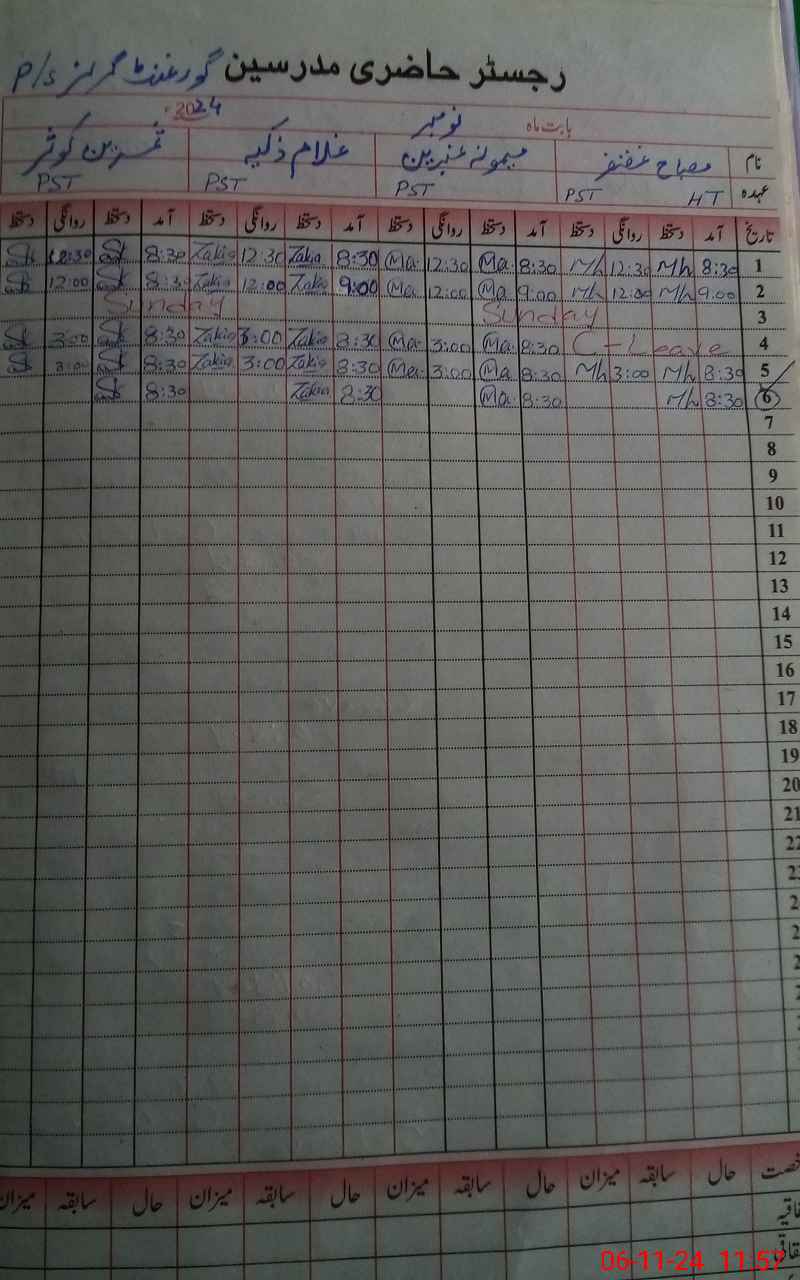 رجسٹر حاضری مدرسین گورنمنٹ گرلز P/s
بابت ماہ نومبر 2024
نام مصباح غضنفر میمونہ عنبرین غلام ذکیہ ثمرین کوثر
عہدہ HT PST PST PST PST
تاریخ آمد دستخط روانگی دستخط آمد دستخط روانگی دستخط آمد دستخط روانگی دستخط آمد دستخط روانگی دستخط
1 8:30 Mh 12:30 Mh 8:30 Ma 12:30 Ma 8:30 Zakia 12:30 Zakia 8:30 Sk 12:30 Sk
2 9:00 Mh 12:00 Mh 9:00 Ma 12:00 Ma 9:00 Zakia 12:00 Zakia 8:30 Sk 12:00 Sk
3 Sunday Sunday
4 C-Leave 8:30 Ma 3:00 Ma 8:30 Zakia 3:00 Zakia 8:30 Sk 3:00 Sk
5 8:30 Mh 3:00 Mh 8:30 Ma 3:00 Ma 8:30 Zakia 3:00 Zakia 8:30 Sk 3:00 Sk
6 8:30 Mh 8:30 Ma 8:30 Zakia 8:30 Sk
7
8
9
10
11
12
13
14
15
16
17
18
19
20
21
22
2
2
2
2
حال سابقہ میزان حال سابقہ میزان حال سابقہ میزان حال سابقہ میزان
06-11-24 11:57